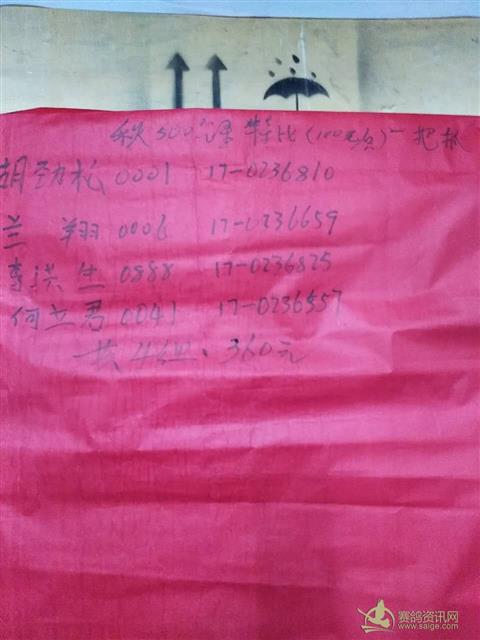 秋500公里特比(100元员)一把抓
胡劲松 0001 17-0236810
兰翔 0006 17-0236659
李洪生 0888 17-0236825
何立君 0041 17-0236557
共4组、360元
赛鸽资讯网
www.saige.com